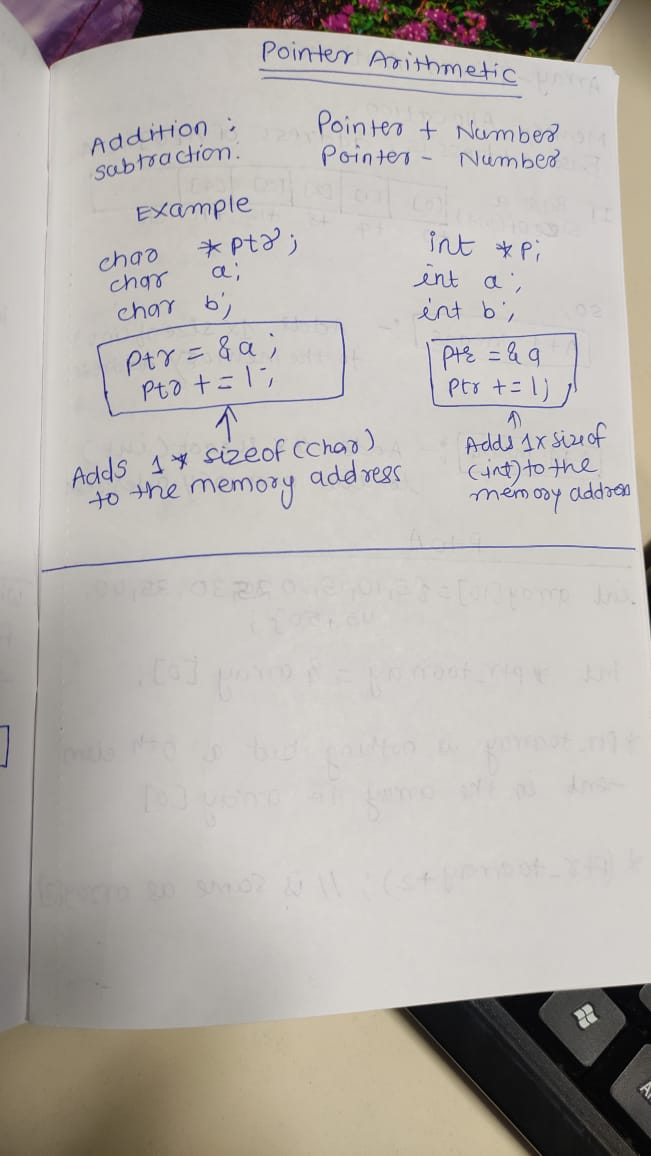 Pointer Arithmetic
Addition : Pointer + Number
subtraction. Pointer - Number
Example
char *ptr;
char a;
char b;
ptr = &a;
ptr += 1;
Adds 1 * sizeof (char)
to the memory address
int *p;
int a;
int b;
ptr = &a
ptr += 1;
Adds 1x sizeof
(int) to the
memory address